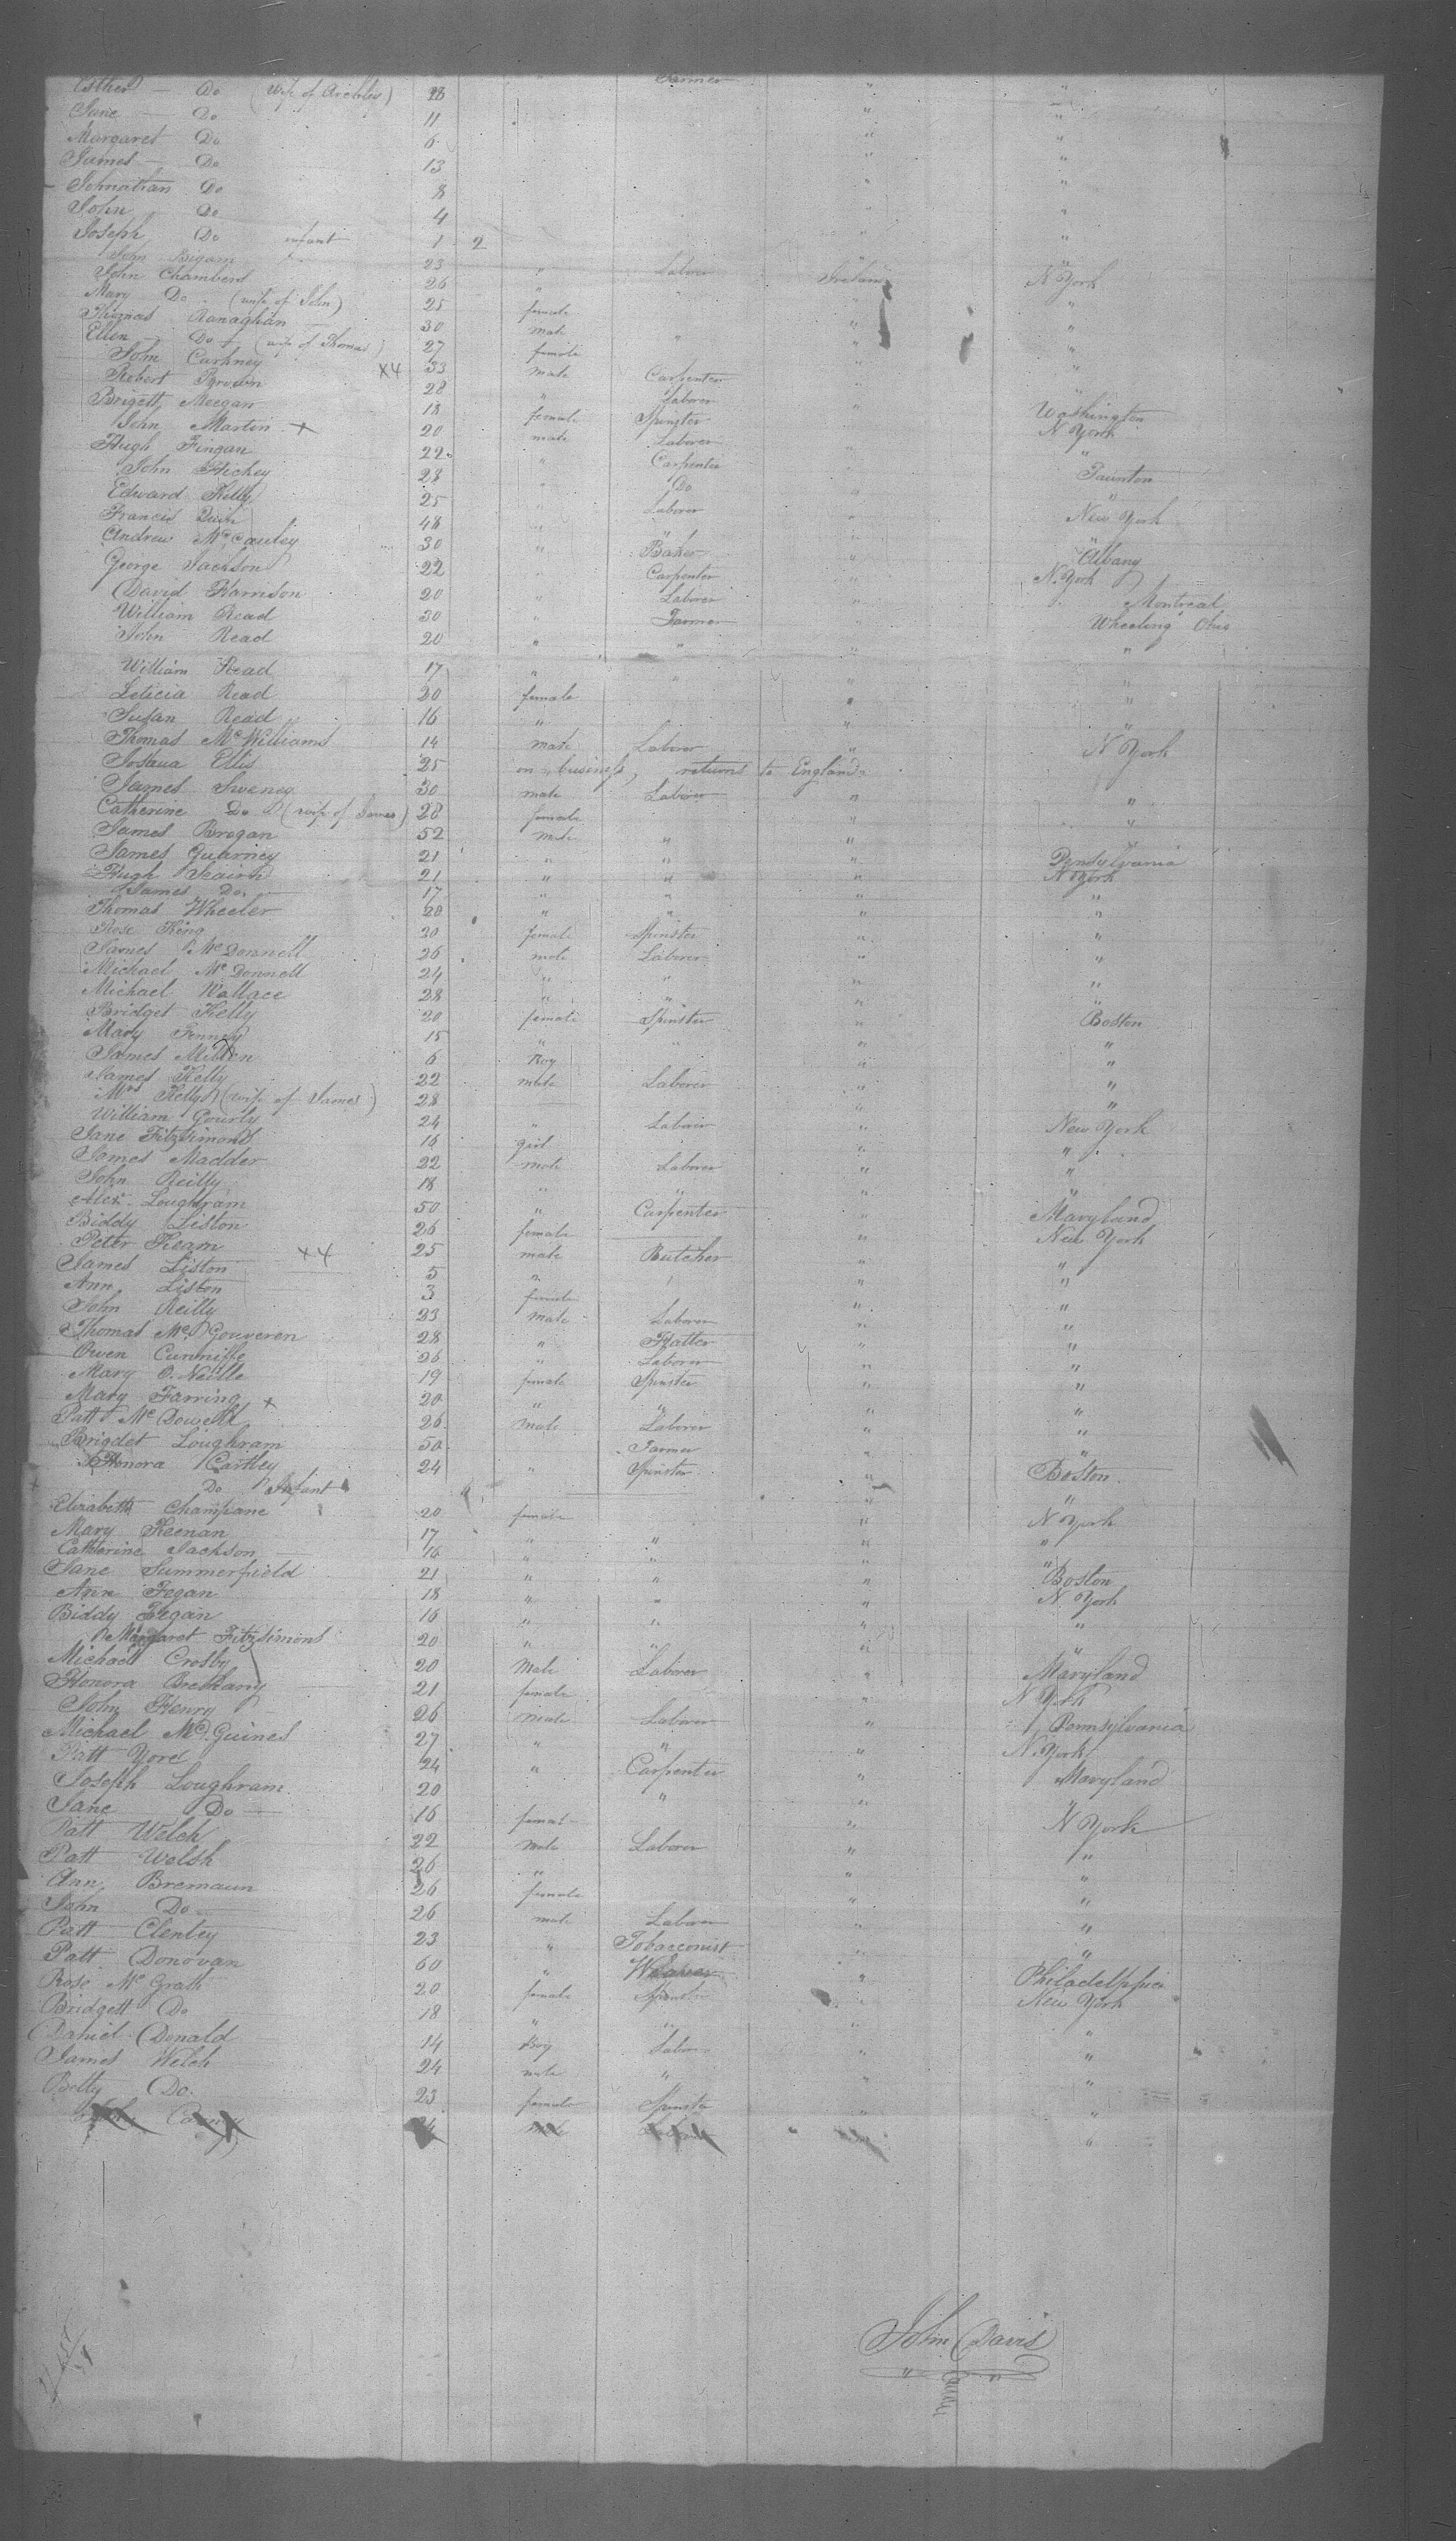 Esther — Do (Wife of Archley) 28 " Farmer " "
Jane — Do 11 " "
Margaret Do 6 " "
James — Do 13 " "
Johnathan Do 8 " "
John Do 4 " "
Joseph Do infant 1 2 " "
John Bigam 23 " Labor Ireland N York
John Chambers 26 " " "
Mary Do (wife of John) 25 female " "
Thomas Ranaghan 30 male " " "
Ellen Do (wife of Thomas) 27 female " "
John Carhney X4 33 male Carpenter " "
Robert Brown 28 " Laborer " Washington
Brigett Meegan 18 female Spinster " N York
John Martin + 20 male Laborer " "
Hugh Fingan 22 " Carpenter " Taunton
John Hickey 28 " Do " "
Edward Kelly 25 " Laborer " New York
Francis Quin 48 " " " "
Andrew McCauley 30 " Baker " Albany
George Jackson 22 " Carpenter " N. York
David Harrison 20 " Laborer " Montreal
William Read 30 " Farmer " Wheeling Ohio
John Read 20 " " " "
William Read 17 " " " "
Leticia Read 20 female " "
Susan Read 16 " " "
Thomas McWilliams 14 male Laborer " N York
Joshua Ellis 25 on business, returns to England
James Sweney 30 male Laborer " "
Catherine Do (wife of James) 28 female " "
James Brogan 52 male " " "
James Quarney 21 " " " Pensylvania
Hugh 21 " " " N York
James Do. 17 " " " "
Thomas Wheeler 28 " " " "
Rose King 20 female Spinster " "
James McDonnell 26 male Laborer " "
Michael McDonnell 24 " " " "
Michael Wallace 28 " " " "
Bridget Kelly 20 female Spinster " Boston
Mary 15 " " " "
James Millen 6 Boy " "
James Kelly 22 male Laborer " "
Mrs Kelly (wife of James) 28 " "
William Gourly 24 " Laborer " New York
Jane Fitzsimons 16 girl " "
James Madder 22 male Laborer " "
John Reilly 18 " " " "
Alexr. Loughram 50 " Carpenter " Maryland
Biddy Liston 26 female " New York
Peter Keam X4 25 male Butcher " "
James Liston 5 " " "
Ann Liston 3 female " "
John Reilly 23 male Laborer " "
Thomas McGouveren 28 " Hatter " "
Owen Cunniffe 26 " Laborer " "
Mary O. Neille 19 female Spinster " "
Mary Farring + 20 " " " "
Patt McDowell 26 male Laborer " "
Brigdet Loughram 50 Farmer " "
Honora Cartley 24 " Spinster " Boston
Do Infant " "
Elizabeth Champane 20 female " N York
Mary Keenan 17 " " " "
Catherine Jackson 16 " " " "
Jane Summerfield 21 " " " Boston
Ann Fegan 18 " " " N York
Biddy Fegan 16 " " " "
Margaret Fitzsimons 20 " " " "
Michael Crosby 20 Male Laborer " Maryland
Honora Brethany 21 female " N York
John Henry 26 male Laborer " Pennsylvania
Michael McGuines 27 " " " N. York
Patt Yore 24 " Carpenter " Maryland
Joseph Loughram 20 " " "
Jane Do 16 female " N York
Patt Welch 22 male Laborer " "
Patt Welsh 26 " " "
Ann Bremaun 26 female " "
John Do 26 male Laborer " "
Patt Clenley 23 " Tobacconist " "
Patt Donovan 60 " Weaver " Philadelphia
Rose McGrath 20 female Spinster " New York
Bridgett Do 18 " " " "
Daniel Donald 14 Boy Labor " "
James Welch 24 male " " "
Betty Do. 23 female Spinster " "
John Davis